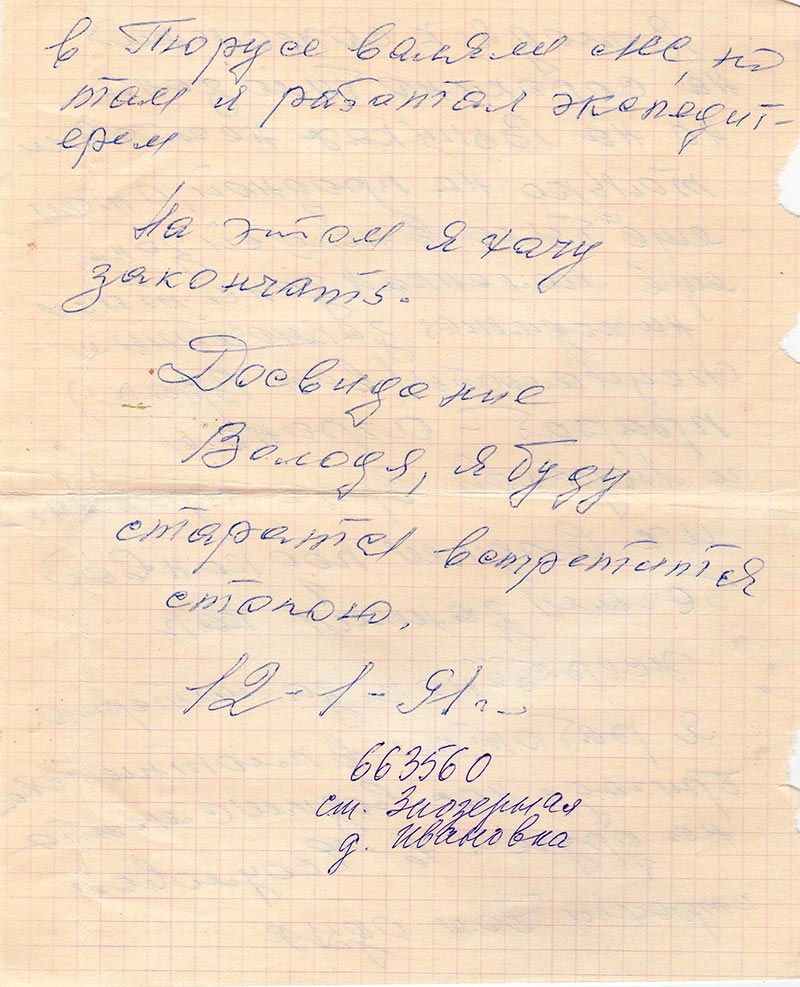 в Тюрусе валяли лес, но
там я работал экспедит-
ером
На этом я хачу
закончать.
Досвидание
Володя, я буду
старатся встретится
стобою.
12-1-91г.
663560
ст. Заозерная
д. Ивановка